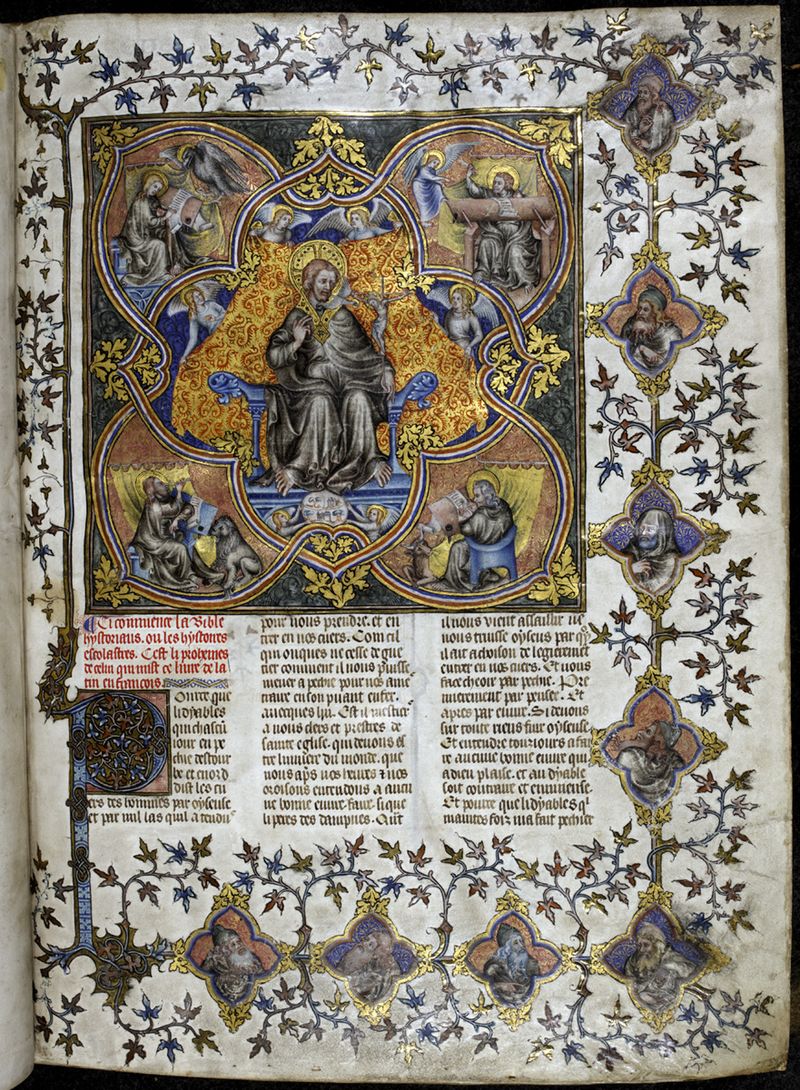 Ci commence la Bible
hystoriaus. ou les hystoires
escolastres. C'est li prohemes
de celui qui mist ce livre de la
tin en francois.
Pource que
li dyables
qui chascun
iour
destour
be et enord
dist les cu
ers des hommes par oyseuse
et par mil las quil a tendus
pour nous prendre. et en
trer en nos cuers. Com cil
qui onques ne cesse de gue
tier comment il nous puisse
mener a pechie pour nos ame
traire en son puant enfer.
avecques lui. Est il mestier
a nous clers et prestres de
sainte eglise. qui devons es
tre lumiere du monde. que
nous aps nos heures et nos
oroisons entendons a aucu
ne bonne euvre faire. si que
li peres des
il nous vient assaillir ne
nous truisse oyseus par quoy
il ait achoison de legierement
entrer en nos cuers. Et nous
face cheoir par pechie. Pre
mierement par penser. Et
apres par euvre. Si devons
sur toute riens fuir oyseuse.
Et entendre tousiours a fai
re aucune bonne euvre qui
a dieu plaise. et au dyable
soit contraire et ennuieuse.
Et pource que li dyables qi
maintes foiz ma fait pechier